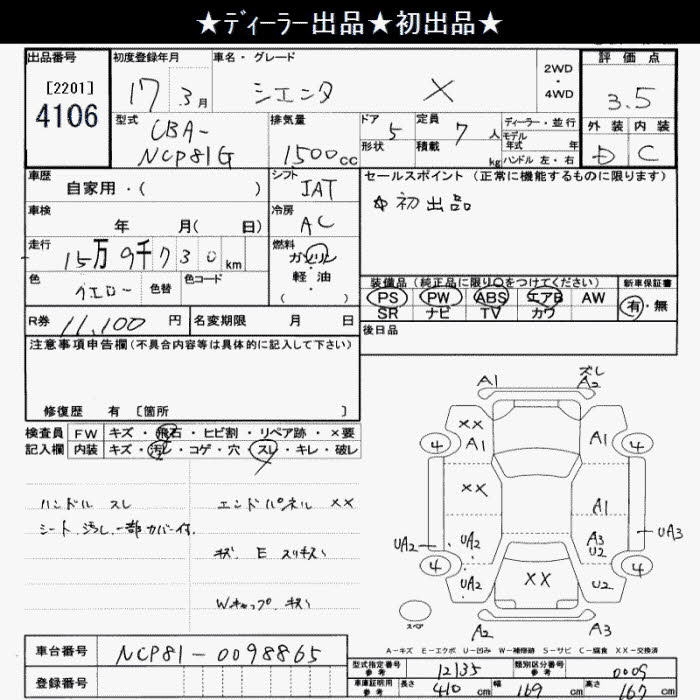 ★ﾃﾞｨｰﾗｰ出品★初出品★
出品番号
[2201]
4106
初度登録年月
17 3月
車名・グレード
シエンタ X
2WD
・
4WD
評価点
3.5
外装 内装
D C
型式
CBA-
NCP81G
排気量
1500cc
ドア 5
形状
定員 7 人
積載 kg
ディーラー・並行
モデル
年式 年
ハンドル 左・右
車歴
自家用・( )
シフト
IAT
車検
年 月( 日)
冷房
AC
走行
15万9千730km
燃料
ガソリン
・
軽油
( )
色
イエロー
色替
色コード
R券 11,100 円
名変期限 月 日
セールスポイント(正常に機能するものに限ります)
☆初出品
装備品(純正品に限り○をつけてください)
PS PW ABS エアB AW
SR ナビ TV カワ
新車保証書
有・無
後日品
注意事項申告欄(不具合内容等は具体的に記入して下さい)
修復歴 有 [箇所 ]
検査員
記入欄
FW キズ・飛石・ヒビ割・リペア跡・×要
内装 キズ・汚レ・コゲ・穴・スレ・キレ・破レ
ハンドル スレ
シート 汚レ、一部カバー付、
エンドパネル XX
キズ、E スリキズ、
Wキャップ キズ、
A1
ズレ
A2
XX
A1
A1
4
4
XX
A1
UA2
UA2
A3
U2
UA3
4
UA2
XX
U2
4
スペア
A2
A3
A-キズ E-エクボ U-凹み W-補修跡 S-サビ C-腐食 XX-交換済
車台番号 NCP81-0098865
登録番号
型式指定番号
参考
12135
類別区分番号
参考
0009
車庫証明用
参考
長さ 410 cm
幅 169 cm
高さ 167 cm